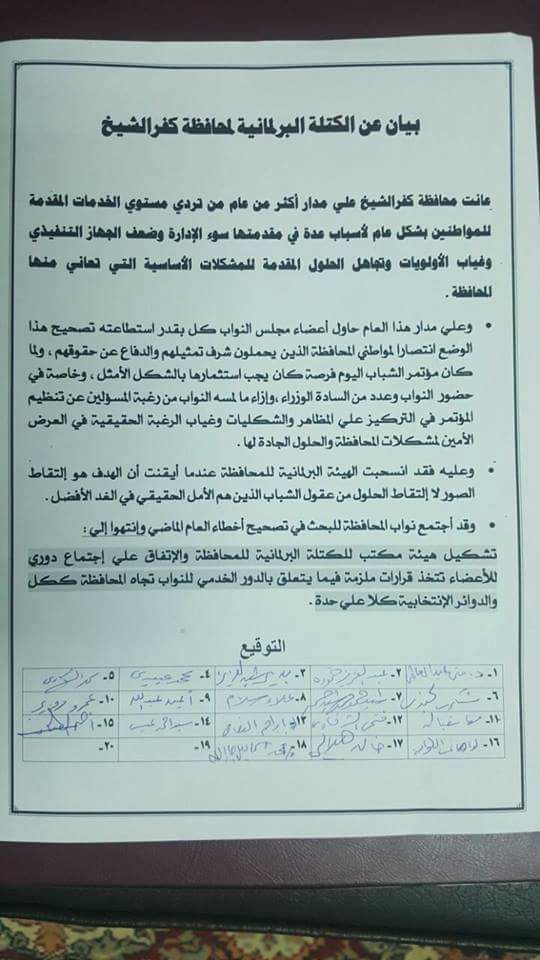 بيان عن الكتلة البرلمانية لمحافظة كفرالشيخ
عانت محافظة كفرالشيخ علي مدار أكثر من عام من تردي مستوي الخدمات المقدمة
للمواطنين بشكل عام لأسباب عدة في مقدمتها سوء الإدارة وضعف الجهاز التنفيذي
وغياب الأولويات وتجاهل الحلول المقدمة للمشكلات الأساسية التي تعاني منها
المحافظة .
• وعلي مدار هذا العام حاول أعضاء مجلس النواب كل بقدر استطاعته تصحيح هذا
الوضع انتصارا لمواطني المحافظة الذين يحملون شرف تمثيلهم والدفاع عن حقوقهم ، ولما
كان مؤتمر الشباب اليوم فرصة كان يجب استثمارها بالشكل الأمثل ، وخاصة في
حضور النواب وعدد من السادة الوزراء، وإزاء ما لمسه النواب من رغبة المسؤلين عن تنظيم
المؤتمر في التركيز علي المظاهر والشكليات وغياب الرغبة الحقيقية في العرض
الأمين لمشكلات المحافظة والحلول الجادة لها .
• وعليه فقد انسحبت الهيئة البرلمانية للمحافظة عندما أيقنت أن الهدف هو إلتقاط
الصور لا إلتقاط الحلول من عقول الشباب الذين هم الأمل الحقيقي في الغد الأفضل .
• وقد أجتمع نواب المحافظة للبحث في تصحيح أخطاء العام الماضي وإنتهوا إلي :
تشكيل هيئة مكتب للكتلة البرلمانية للمحافظة والإتفاق علي إجتماع دوري
للأعضاء تتخذ قرارات ملزمة فيما يتعلق بالدور الخدمي للنواب تجاه المحافظة ككل
والدوائر الإنتخابية كلا علي حدة .
التوقيع
١- ٢- ٣- ٤- ٥-
٦- ٧- ٨- علاء سلام ٩- ١٠-
١١- ١٢- ١٣- ١٤- ١٥-
١٦- ١٧- خالد ١٨- ١٩- ٢٠-